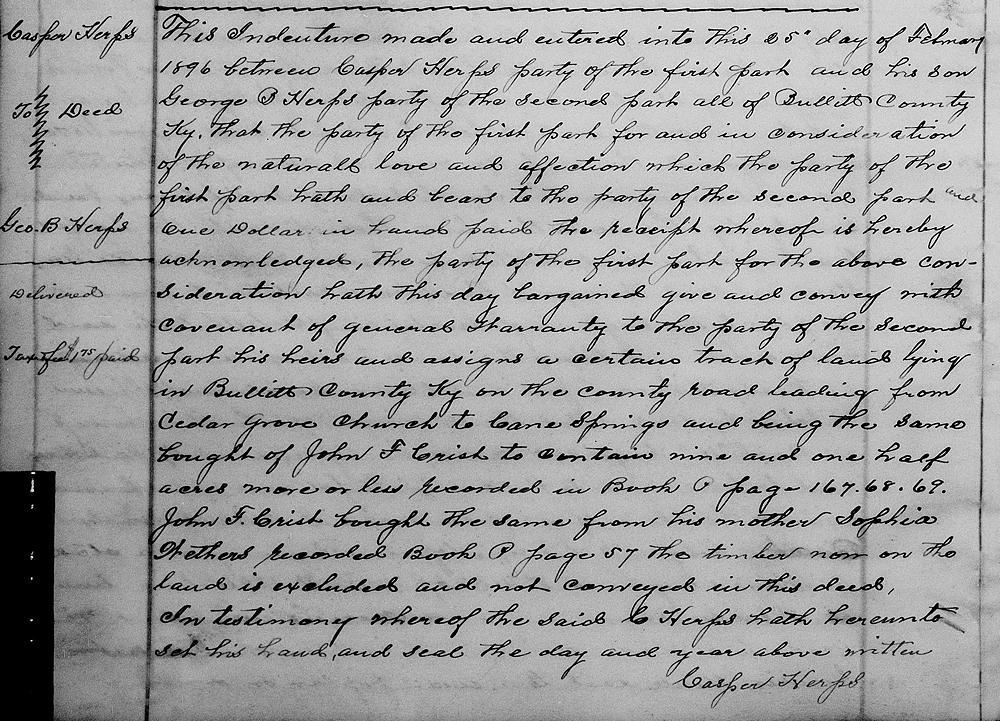 Casper Herps
To Deed
Geo. B Herps
Delivered
Tax & fee $1.75 paid
This Indenture made and entered into this 25" day of February
1896 between Casper Herps party of the first part and his son
George B Herps party of the second part all of Bullitt County
Ky. that the party of the first part for and in consideration
of the naturall love and affection which the party of the
first part hath and bears to the party of the second part and
One Dollar in hand paid the receipt whereof is hereby
acknowledged, the party of the first part for the above con-
sideration hath this day bargained give and convey with
covenant of general Warranty to the party of the second
part his heirs and assigns a certain tract of land lying
in Bullitt County Ky on the county road leading from
Cedar Grove Church to Cane Springs and being the same
bought of John F Crist to contain nine and one half
acres more or less recorded in Book P page 167.68.69.
John F. Crist bought the same from his mother Sophia
Wethers recorded Book P page 57 the timber now on the
land is excluded and not conveyed in this deed,
In testimony whereof the said C Herps hath hereunto
set his hand, and seal the day and year above written
Casper Herps